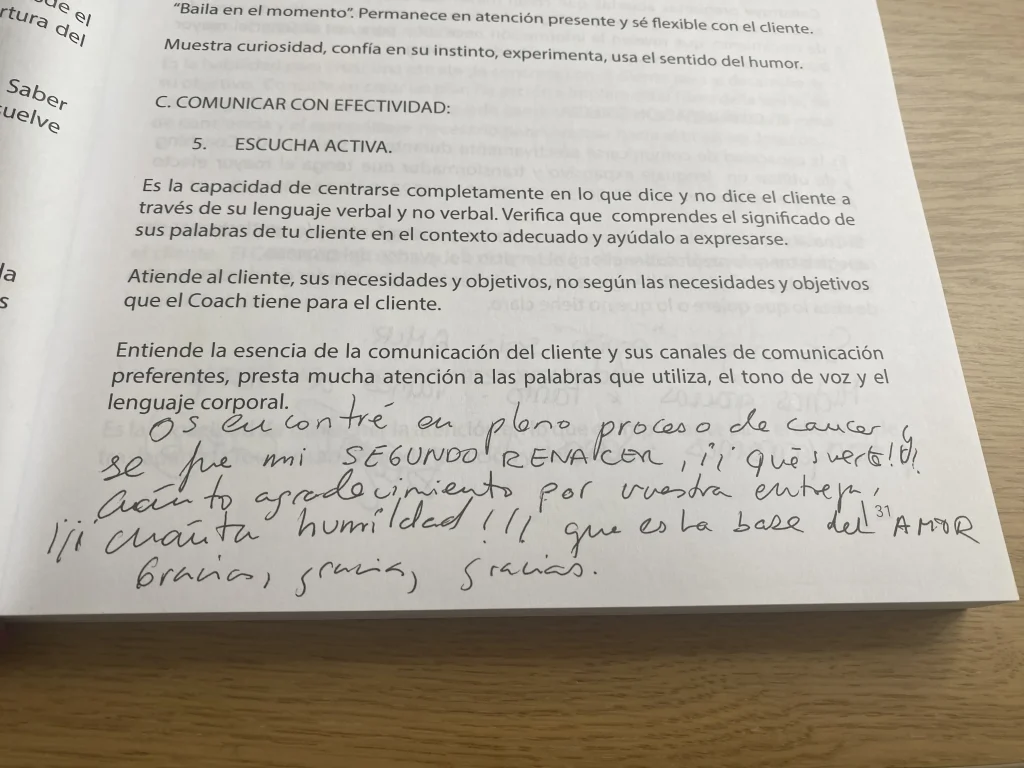 ue el
rtura del
Saber
suelve
la
s
"Baila en el momento". Permanece en atención presente y sé flexible con el cliente.
Muestra curiosidad, confía en su instinto, experimenta, usa el sentido del humor.
C. COMUNICAR CON EFECTIVIDAD:
5. ESCUCHA ACTIVA.
Es la capacidad de centrarse completamente en lo que dice y no dice el cliente a
través de su lenguaje verbal y no verbal. Verifica que comprendes el significado de
sus palabras de tu cliente en el contexto adecuado y ayúdalo a expresarse.
Atiende al cliente, sus necesidades y objetivos, no según las necesidades y objetivos
que el Coach tiene para el cliente.
Entiende la esencia de la comunicación del cliente y sus canales de comunicación
preferentes, presta mucha atención a las palabras que utiliza, el tono de voz y el
lenguaje corporal.
Os encontré en pleno proceso de cancer y
se fue mi SEGUNDO RENACER, ¡¡ qué suerte!!
cuánto agradecimiento por vuestra entrega,
¡¡¡ cuánta humildad!!! que es la base del AMOR
31
Gracias, gracias, gracias.